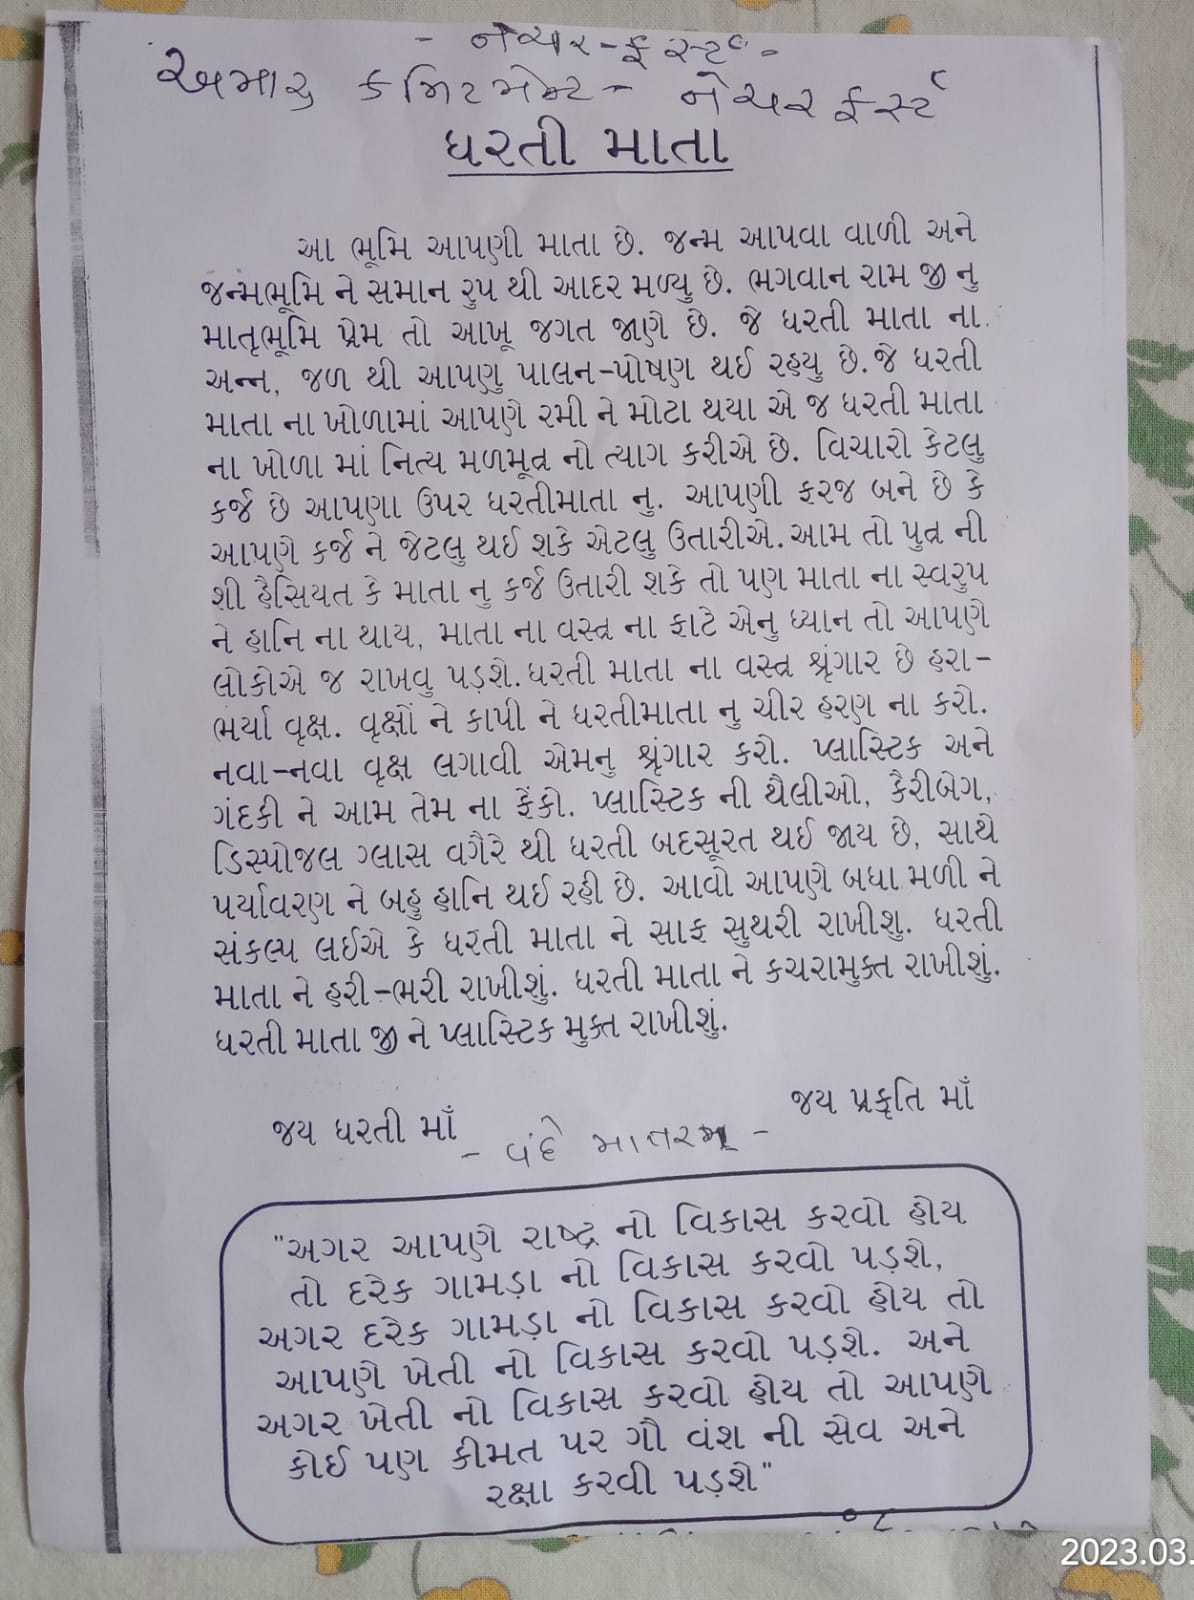 - નેચર-ફર્સ્ટ -
અમારુ કમિટમેન્ટ - નેચર ફર્સ્ટ
ધરતી માતા
આ ભૂમિ આપણી માતા છે. જન્મ આપવા વાળી અને
જન્મભૂમિ ને સમાન રુપ થી આદર મળ્યુ છે. ભગવાન રામ જી નુ
માતૃભૂમિ પ્રેમ તો આખૂ જગત જાણે છે. જે ધરતી માતા ના
અન્ન, જળ થી આપણુ પાલન-પોષણ થઈ રહયુ છે. જે ધરતી
માતા ના ખોળામાં આપણે રમી ને મોટા થયા એ જ ધરતી માતા
ના ખોળા માં નિત્ય મળમૂત્ર નો ત્યાગ કરીએ છે. વિચારો કેટલુ
કર્જ છે આપણા ઉપર ધરતીમાતા નુ. આપણી ફરજ બને છે કે
આપણે કર્જ ને જેટલુ થઈ શકે એટલુ ઉતારીએ. આમ તો પુત્ર ની
શી હૈસિયત કે માતા નુ કર્જ ઉતારી શકે તો પણ માતા ના સ્વરુપ
ને હાનિ ના થાય, માતા ના વસ્ત્ર ના ફાટે એનુ ધ્યાન તો આપણે
લોકોએ જ રાખવુ પડશે. ધરતી માતા ના વસ્ત્ર શ્રૃંગાર છે હરા-
ભર્યા વૃક્ષ. વૃક્ષોં ને કાપી ને ધરતીમાતા નુ ચીર હરણ ના કરો.
નવા-નવા વૃક્ષ લગાવી એમનુ શ્રૃંગાર કરો. પ્લાસ્ટિક અને
ગંદકી ને આમ તેમ ના ફેંકો. પ્લાસ્ટિક ની થૈલીઓ, કૈરીબેગ,
ડિસ્પોજલ ગ્લાસ વગૈરે થી ધરતી બદસૂરત થઈ જાય છે, સાથે
પર્યાવરણ ને બહુ હાનિ થઈ રહી છે. આવો આપણે બધા મળી ને
સંકલ્પ લઈએ કે ધરતી માતા ને સાફ સુથરી રાખીશુ. ધરતી
માતા ને હરી-ભરી રાખીશું. ધરતી માતા ને કચરામુક્ત રાખીશું.
ધરતી માતા જી ને પ્લાસ્ટિક મુક્ત રાખીશું.
જય ધરતી માઁ જય પ્રકૃતિ માઁ
- વંદે માતરમ્ -
"અગર આપણે રાષ્ટ્ર નો વિકાસ કરવો હોય
તો દરેક ગામડા નો વિકાસ કરવો પડશે,
અગર દરેક ગામડા નો વિકાસ કરવો હોય તો
આપણે ખેતી નો વિકાસ કરવો પડશે. અને
અગર ખેતી નો વિકાસ કરવો હોય તો આપણે
કોઈ પણ કીમત પર ગૌ વંશ ની સેવ અને
રક્ષા કરવી પડશે"
2023.03.